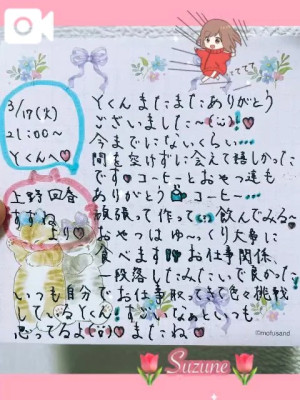 3/17(火)
21:00〜
Yくんへ♡
上野回春
すずね
より♡
Yくんまたまたありがとう
ございました〜(¨)!♡
今までにないくらい…
間を空けずに会えて嬉しかった
です♡コーヒーとおやつ達も
ありがとう コーヒー…
頑張って作って 飲んでみる〜
おやつはゆ〜っくり大事に
食べます!!お仕事関係、
一段落したみたいで良かった!
いつも自分でお仕事取ってきて色々挑戦
しているYくん!すごいなぁといつも
思ってるよ(¨)♡またね♡
てててて
©mofusand
Suzune